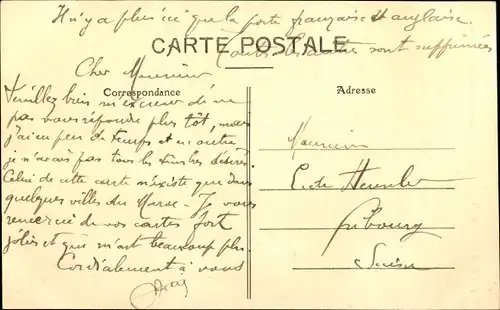 Il n'y a plus ici que la poste française et anglaise.
Toutes les autres sont supprimées
CARTE POSTALE
Cher Monsieur
Correspondance
Veuillez bien m'excuser de ne
pas vous répondre plus tôt, mais
j'ai eu peu de temps et en outre
je n'avais pas tous les timbres désirés.
Celui de cette carte n'existe que dans
quelques villes du Maroc - Je vous
remercie de vos cartes fort
jolies et qui m'ont beaucoup plu.
Cordialement à vous
Adresse
Monsieur
E. de
Fribourg
Suisse